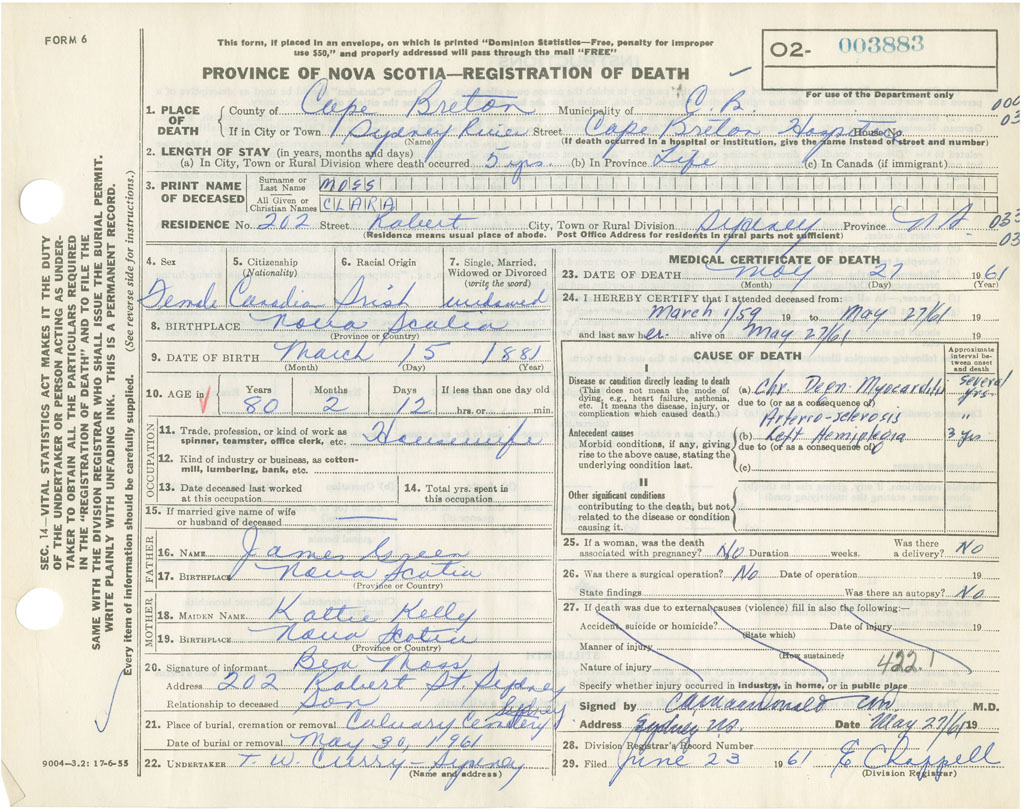 FORM 6
This form, if placed in an envelope, on which is printed "Dominion Statistics—Free, penalty for improper
use $50," and properly addressed will pass through the mail "FREE"
O2- 003883
For use of the Department only
PROVINCE OF NOVA SCOTIA—REGISTRATION OF DEATH
1. PLACE OF DEATH
County of Cape Breton Municipality of C. B.
If in City or Town Sydney River Street Cape Breton Hospital House No.
(Name) (If death occurred in a hospital or institution, give the name instead of street and number)
2. LENGTH OF STAY (in years, months and days)
(a) In City, Town or Rural Division where death occurred 5 yrs. (b) In Province Life (c) In Canada (if immigrant)
3. PRINT NAME OF DECEASED
Surname or Last Name MOSS
All Given or Christian Names CLARA
RESIDENCE No. 202 Street Robert City, Town or Rural Division Sydney Province N.S.
(Residence means usual place of abode. Post Office Address for residents in rural parts not sufficient)
4. Sex
5. Citizenship (Nationality)
6. Racial Origin
7. Single, Married, Widowed or Divorced (write the word)
Female Canadian Irish widowed
8. BIRTHPLACE Nova Scotia
(Province or Country)
9. DATE OF BIRTH March 15 1881
(Month) (Day) (Year)
10. AGE in
Years Months Days If less than one day old
80 2 12 hrs. or min.
OCCUPATION
11. Trade, profession, or kind of work as
spinner, teamster, office clerk, etc. Housewife
12. Kind of industry or business, as cotton-
mill, lumbering, bank, etc.
13. Date deceased last worked at this occupation
14. Total yrs. spent in this occupation
15. If married give name of wife
or husband of deceased
FATHER
16. NAME James Green
17. BIRTHPLACE Nova Scotia
(Province or Country)
MOTHER
18. MAIDEN NAME Kattie Kelly
19. BIRTHPLACE Nova Scotia
(Province or Country)
20. Signature of informant Ben Moss
Address 202 Robert St. Sydney
Relationship to deceased Son
21. Place of burial, cremation or removal Calvary Cemetery Sydney
Date of burial or removal May 30, 1961
22. UNDERTAKER T. W. Curry - Sydney
(Name and address)
MEDICAL CERTIFICATE OF DEATH
23. DATE OF DEATH May 27 1961
(Month) (Day) (Year)
24. I HEREBY CERTIFY that I attended deceased from:
March 1/59 19 to May 27/61
and last saw her alive on May 27/61 19
CAUSE OF DEATH
Approximate interval between onset and death
I
Disease or condition directly leading to death
(This does not mean the mode of
dying, e.g., heart failure, asthenia,
etc. It means the disease, injury, or
complication which caused death.)
(a) Chr. Degn. Myocarditis several yrs.
due to (or as a consequence of)
Arterro-sclerosis "
Antecedent causes
Morbid conditions, if any, giving
rise to the above cause, stating the
underlying condition last.
(b) Left Hemiplegia 3 yrs
due to (or as a consequence of)
(c)
II
Other significant conditions
contributing to the death, but not
related to the disease or condition
causing it.
25. If a woman, was the death
associated with pregnancy? No Duration weeks. Was there a delivery? No
26. Was there a surgical operation? No Date of operation 19
State findings Was there an autopsy? No
27. If death was due to external causes (violence) fill in also the following:—
Accident, suicide or homicide? Date of injury 19
(State which)
Manner of injury
(How sustained)
Nature of injury 422.1
Specify whether injury occurred in industry, in home, or in public place
Signed by M.D.
Address Sydney NS. Date May 27/61 19
28. Division Registrar's Record Number
29. Filed June 23 1961 E Chappell
(Division Registrar)
SEC. 14—VITAL STATISTICS ACT MAKES IT THE DUTY
OF THE UNDERTAKER OR PERSON ACTING AS UNDER-
TAKER TO OBTAIN ALL THE PARTICULARS REQUIRED
IN THE "REGISTRATION OF DEATH" AND TO FILE THE
SAME WITH THE DIVISION REGISTRAR WHO SHALL ISSUE THE BURIAL PERMIT.
WRITE PLAINLY WITH UNFADING INK. THIS IS A PERMANENT RECORD.
Every item of information should be carefully supplied. (See reverse side for instructions.)
9004-3.2: 17-6-55